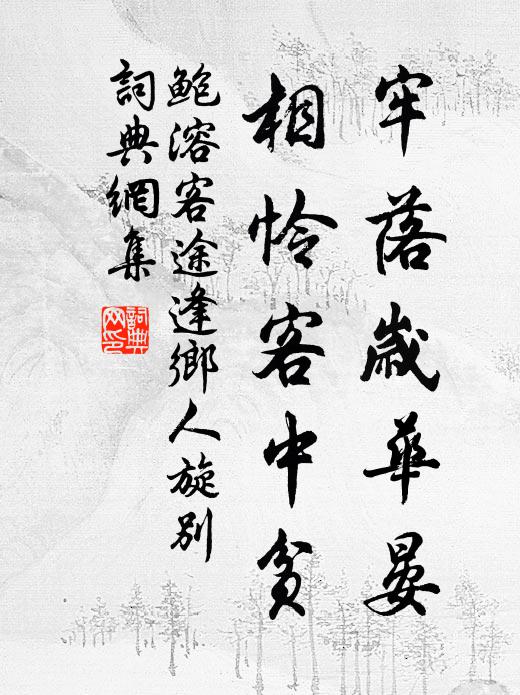 牢落歲華晏
相怜客中貧
鮑溶客途逢鄉人旋別
詞典網集
詞典網印